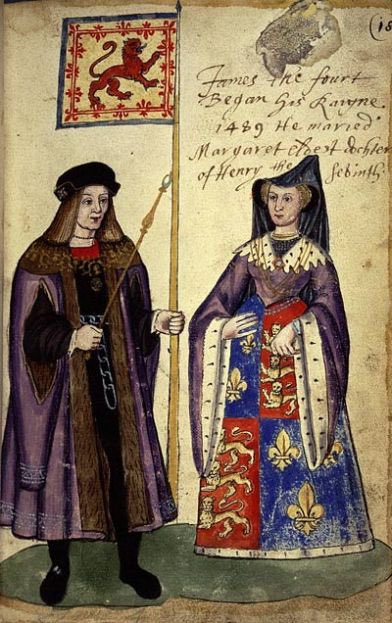 (18
James the fourt
Began his Rayne
1489 He maried
Margaret Eldest dochter
of Henry the Sebinth